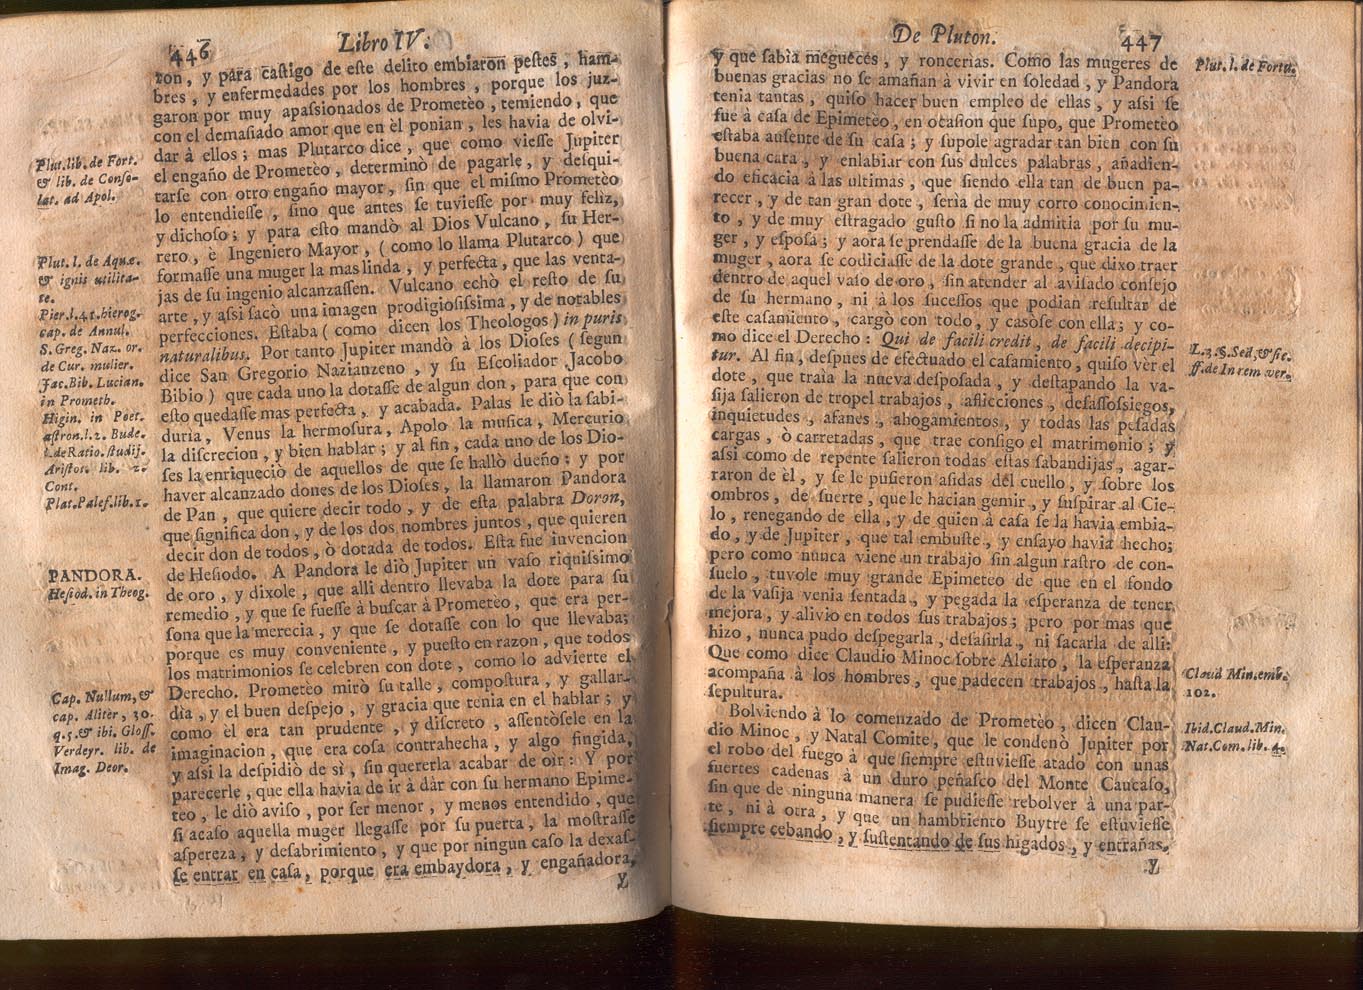 446
Libro IV.
ron, y para castigo de este delito embiaron pestes, ham-
bres, y enfermedades por los hombres, porque los juz-
garon por muy apassionados de Prometèo, temiendo, que
con el demasiado amor que en èl ponian, les havia de olvi-
dar à ellos; mas Plutarco dice, que como viesse Jupiter
el engaño de Prometèo, determinò de pagarle, y desqui-
tarse con otro engaño mayor, sin que el mismo Prometèo
lo entendiesse, sino que antes se tuviesse por muy felìz,
y dichoso; y para esto mandò al Dios Vulcano, su Her-
rero, è Ingeniero Mayor, (como lo llama Plutarco) que
formasse una muger la mas linda, y perfecta, que las venta-
jas de su ingenio alcanzassen. Vulcano echò el resto de su
arte, y assi sacò una imagen prodigiosissima, y de notables
perfecciones. Estaba (como dicen los Theologos) in puris
naturalibus. Por tanto Jupiter mandò à los Dioses (segun
dice San Gregorio Nazianzeno, y su Escoliador Jacobo
Bibio) que cada uno la dotasse de algun don, para que con
esto quedasse mas perfecta, y acabada. Palas le diò la sabi-
duria, Venus la hermosura, Apolo la musica, Mercurio
la discrecion, y bien hablar; y al fin, cada uno de los Dio-
ses la enriqueciò de aquellos de que se hallò dueño: y por
haver alcanzado dones de los Dioses, la llamaron Pandora
de Pan, que quiere decir todo, y de esta palabra Doron,
que significa don, y de los dos nombres juntos, que quieren
decir don de todos, ò dotada de todos. Esta fue invencion
de Hesiodo. A Pandora le diò Jupiter un vaso riquissimo
de oro, y dixole, que alli dentro llevaba la dote para su
remedio, y que se fuesse à buscar à Prometèo, que era per-
sona que la merecia, y que se dotasse con lo que llevaba;
porque es muy conveniente, y puesto en razon, que todos
los matrimonios se celebren con dote, como lo advierte el
Derecho. Prometèo mirò su talle, compostura, y gallar-
dìa, y el buen despejo, y gracia que tenia en el hablar; y
como èl era tan prudente, y discreto, assentòsele en la
imaginacion, que era cosa contrahecha, y algo fingida,
y assi la despidiò de sì, sin quererla acabar de oir: Y por
parecerle, que ella havia de ir à dàr con su hermano Epime-
teo, le diò aviso, por ser menor, y menos entendido, que
si acaso aquella muger llegasse por su puerta, la mostrasse
aspereza, y desabrimiento, y que por ningun caso la dexas-
se entrar en casa, porque era embaydora, y engañadora,
y
Plut. lib. de Fort.
& lib. de Conso-
lat. ad Apol.
Plut. l. de Aquæ.
& ignis utilita-
te.
Pier. l. 41. hierog.
cap. de Annul.
S. Greg. Naz. or.
de Cur. mulier.
Jac. Bib. Lucian.
in Prometh.
Higin. in Poet.
astron. l. 2. Bude.
l. de Ratio. studij.
Aristot. lib. 2.
Cont.
Plat. Palef. lib. 1.
PANDORA.
Hesiod. in Theog.
Cap. Nullum, &
cap. Aliter, 30.
q. 5. & ibi. Gloss.
Verdeyr. lib. de
Imag. Deor.
De Pluton.
447
y que sabia megueces, y roncerias. Como las mugeres de
buenas gracias no se amañan à vivir en soledad, y Pandora
tenia tantas, quiso hacer buen empleo de ellas, y assi se
fue à casa de Epimetèo, en ocasion que supo, que Prometèo
estaba ausente de su casa; y supole agradar tan bien con su
buena cara, y enlabiar con sus dulces palabras, añadien-
do eficacia à las ultimas, que siendo ella tan de buen pa-
recer, y de tan gran dote, serìa de muy corto conocimien-
to, y de muy estragado gusto si no la admitia por su mu-
ger, y esposa; y aora se prendasse de la buena gracia de la
muger, aora se codiciasse de la dote grande, que dixo traer
dentro de aquel vaso de oro, sin atender al avisado consejo
de su hermano, ni à los sucessos que podian resultar de
este casamiento, cargò con todo, y casòse con ella; y co-
mo dice el Derecho: Qui de facili credit, de facili decipi-
tur. Al fin, despues de efectuado el casamiento, quiso vèr el
dote, que traìa la nueva desposada, y destapando la va-
sija salieron de tropel trabajos, aflicciones, desassossiegos,
inquietudes, afanes, ahogamientos, y todas las pesadas
cargas, ò carretadas, que trae consigo el matrimonio; y
assi como de repente salieron todas estas sabandijas, agar-
raron de èl, y se le pusieron asidas del cuello, y sobre los
ombros, de suerte, que le hacian gemir, y suspirar al Cie-
lo, renegando de ella, y de quien à casa se la havia embia-
do, y de Jupiter, que tal embuste, y ensayo havia hecho;
pero como nunca viene un trabajo sin algun rastro de con-
suelo, tuvole muy grande Epimeteo de que en el fondo
de la vasija venia sentada, y pegada la esperanza de tener
mejora, y alivio en todos sus trabajos; pero por mas que
hizo, nunca pudo despegarla, desasirla, ni sacarla de alli:
Que como dice Claudio Minoc sobre Alciato, la esperanza
acompaña à los hombres, que padecen trabajos, hasta la
sepultura.
Bolviendo à lo comenzado de Prometèo, dicen Clau-
dio Minoc, y Natal Comite, que le condenò Jupiter por
el robo del fuego à que siempre estuviesse atado con unas
fuertes cadenas à un duro peñasco del Monte Caucaso,
sin que de ninguna manera se pudiesse rebolver à una par-
te, ni à otra, y que un hambriento Buytre se estuviesse
siempre cebando, y sustentando de sus higados, y entrañas,
Y
Plut. l. de Fortu.
L. 3. §. Sed, & sie.
ff. de In rem ver.
Claud Min. emb.
102.
Ibid. Claud. Min.
Nat. Com. lib. 4.